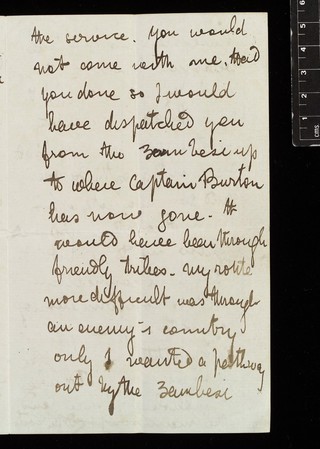 the service. You would
not come with me. Had
you done so I would
have dispatched you
from the Zambesi up
to where Captain Burton
has now gone - It
would have been through
friendly tribes - my route
more difficult was through
an enemy's country
only I wanted a pathway
out by the Zambesi
6
5
4
3
2
1
cms